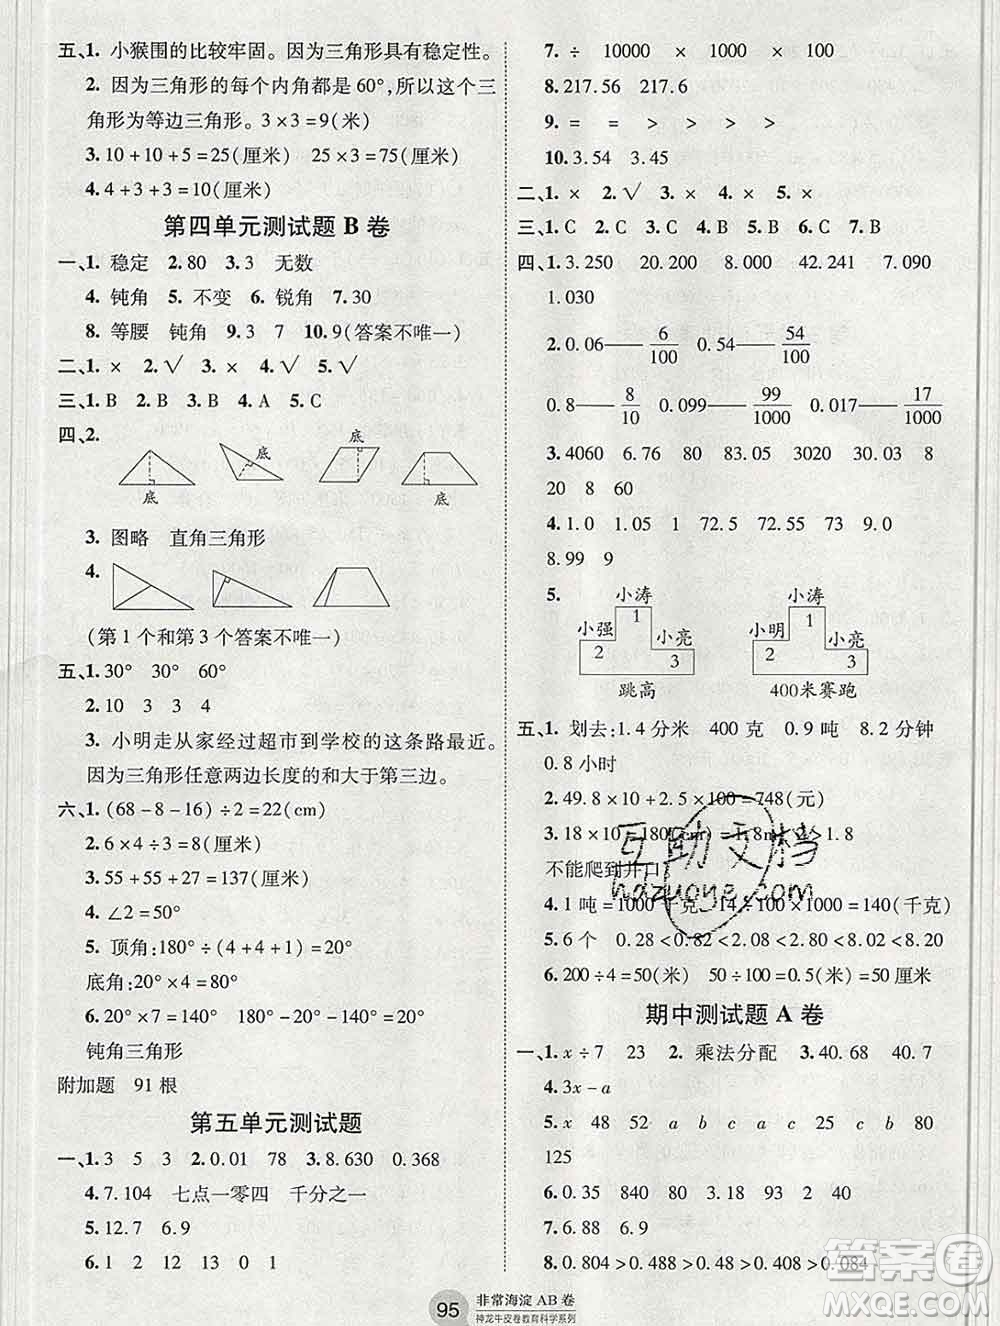 五、1. 小猴围的比较牢固。因为三角形具有稳定性。
2. 因为三角形的每个内角都是 60°,所以这个三
角形为等边三角形。3×3=9(米)
3. 10+10+5=25(厘米) 25×3=75(厘米)
4. 4+3+3=10(厘米)
第四单元测试题 B 卷
一、1. 稳定 2. 80 3. 3 无数
4. 钝角 5. 不变 6. 锐角 7. 30
8. 等腰 钝角 9. 3 7 10. 9(答案不唯一)
二、1. × 2. √ 3. × 4. √ 5. √
三、1. B 2. B 3. B 4. A 5. C
四、2.
底 底
底 底
3. 图略 直角三角形
4.
(第 1 个和第 3 个答案不唯一)
五、1. 30° 30° 60°
2. 10 3 3 4
3. 小明走从家经过超市到学校的这条路最近。
因为三角形任意两边长度的和大于第三边。
六、1. (68-8-16)÷2=22(cm)
2. 6×4÷3=8(厘米)
3. 55+55+27=137(厘米)
4. ∠2=55°
5. 顶角:180°÷(4+4+1)=20°
底角:20°×4=80°
6. 20°×7=140° 180°-140°-20°=20°
钝角三角形
附加题 91 根
第五单元测试题
一、1. 3 5 3 2. 0.01 78 3. 8.630 0.368
4. 7.104 七点一零四 千分之一
5. 12.7 6.9
6. 1 2 12 13 0 1
7. ÷ 10000 × 1000 × 100
8. 217.56 217.6
9. = = > > > >
10. 3.54 3.45
二、1. × 2. √ 3. × 4. × 5. ×
三、1. C 2. C 3. C 4. B 5. B 6. C 7. B
四、1. 3.250 20.200 8.000 42.241 7.090
1.030
2. 0.06——6/100 0.54——54/100
0.8——8/10 0.099——99/1000 0.017——17/1000
3. 4060 6.76 80 83.05 3020 33.03 8
20 8 60
4. 1.0 1.05 1 72.5 72.55 73 9.0
8.99 9
5. 小涛 小涛
小强 1 小亮 小明 1 小亮
2 3 2 3
跳高 400米赛跑
五、1. 划去:1.4 分米 400 克 0.9 吨 8.2 分钟
0.8 小时
2. 49.8×10+2.5×100=748(元)
3. 18×10=180(cm)=1.8m 2>1.8
不能爬到井口
4. 1 吨=1000 千克 14÷100×1000=140(千克)
5. 6 个 0.28<0.82<2.08<2.80<8.02<8.20
6. 200÷4=50(米) 50÷100=0.5(米)=50 厘米
期中测试题 A 卷
一、1. x÷7 23 2. 乘法分配 3. 40.68 40.7
4. 3x-a
5. x 48 52 a b c a c 25 c b 80
125
6. 0.35 840 80 3.18 93 2 40
7. 6.88 6.9
8. 0.804>0.488>0.480>0.408>0.084
互助文档
hazuone.com
答案卷
MXQE.COM
95 非常海淀 AB 卷
神龙牛皮卷教育科学系列